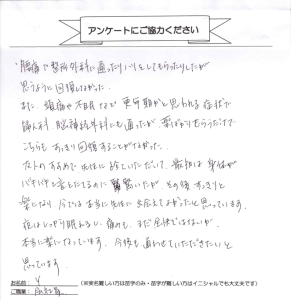 アンケートにご協力ください
腰痛で整形外科に通ったりハリをしてもらったりしたが
思うように回復しなかった。
また、頭痛や不眠など更年期かと思われる症状で
婦人科、脳神経外科にも通ったが、薬ばかりもらうだけで
こちらもすっきり回復することがなかった。
友人のすすめで先生に診ていただいて、最初は身体が
バキバキと音をたてるのに驚いたが、その後すっきりと
楽になり、今では本当に先生に出会えてよかったと思っています。
夜はしっかり眠れるし、痛みも、まだ全快ではないが、
本当に楽になっています。今後も通わせていただきたいと
思っています。
お名前: Y
(※実名難しい方は苗字のみ・苗字が難しい方はイニシャルでも大丈夫です)
ご職業: